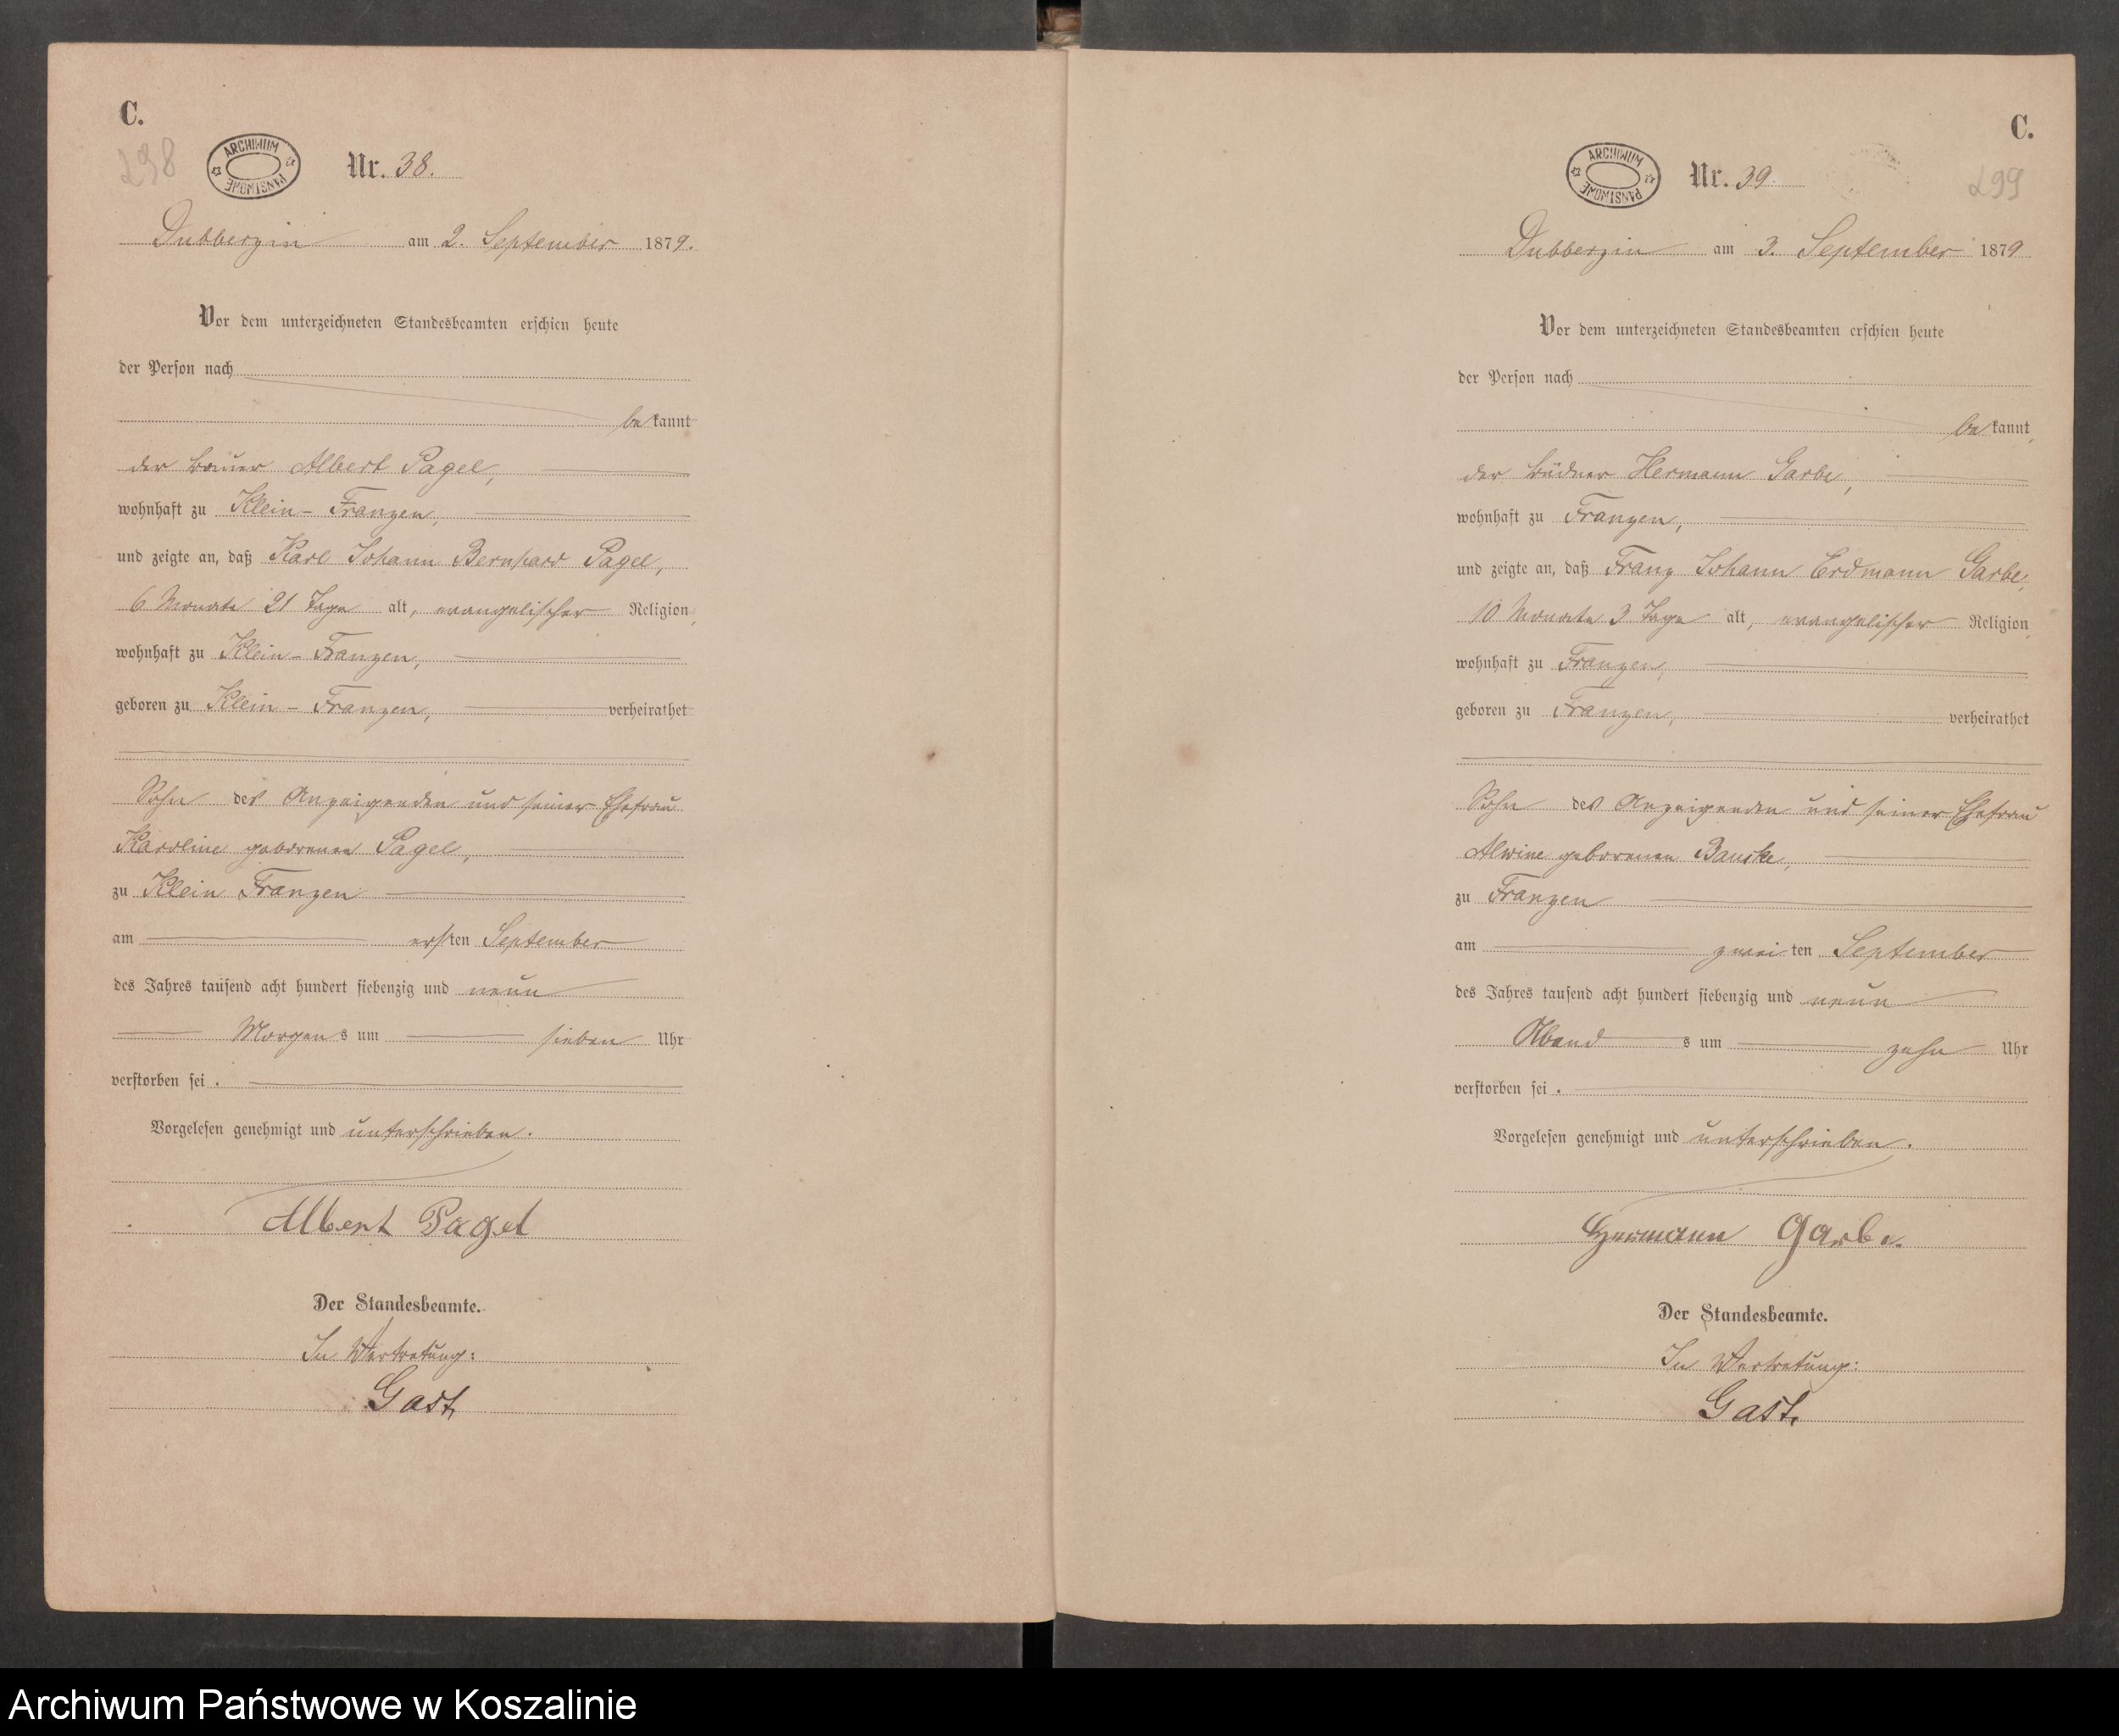 C.
298
ARCHIWUM PAŃSTWOWE
Nr. 38.
Dubberzin am 2. September 1879.
Vor dem unterzeichneten Standesbeamten erschien heute
der Person nach
bekannt
der Bauer Albert Pagel,
wohnhaft zu Klein-Franzen,
und zeigte an, daß Karl Johann Bernhard Pagel,
6 Monate 21 Tage alt, evangelischer Religion,
wohnhaft zu Klein-Franzen,
geboren zu Klein-Franzen, verheirathet
Sohn des Anzeigenden und seiner Ehefrau
Karoline geborenen Pagel,
zu Klein Franzen
am ersten September
des Jahres tausend acht hundert siebenzig und neun
Morgens um sieben Uhr
verstorben sei.
Vorgelesen genehmigt und unterschrieben.
Albert Pagel
Der Standesbeamte.
In Vertretung:
Gast
C.
299
ARCHIWUM PAŃSTWOWE
Nr. 39
Dubberzin am 3. September 1879
Vor dem unterzeichneten Standesbeamten erschien heute
der Person nach
bekannt,
der Büdner Hermann Garbe,
wohnhaft zu Franzen,
und zeigte an, daß Franz Johann Erdmann Garbe,
10 Monate 3 Tage alt, evangelischer Religion,
wohnhaft zu Franzen,
geboren zu Franzen, verheirathet
Sohn des Anzeigenden und seiner Ehefrau
Alwine geborenen Banske,
zu Franzen
am zweiten September
des Jahres tausend acht hundert siebenzig und neun
Abends um zehn Uhr
verstorben sei.
Vorgelesen genehmigt und unterschrieben.
Hermann Garbe.
Der Standesbeamte.
In Vertretung:
Gast.
Archiwum Państwowe w Koszalinie